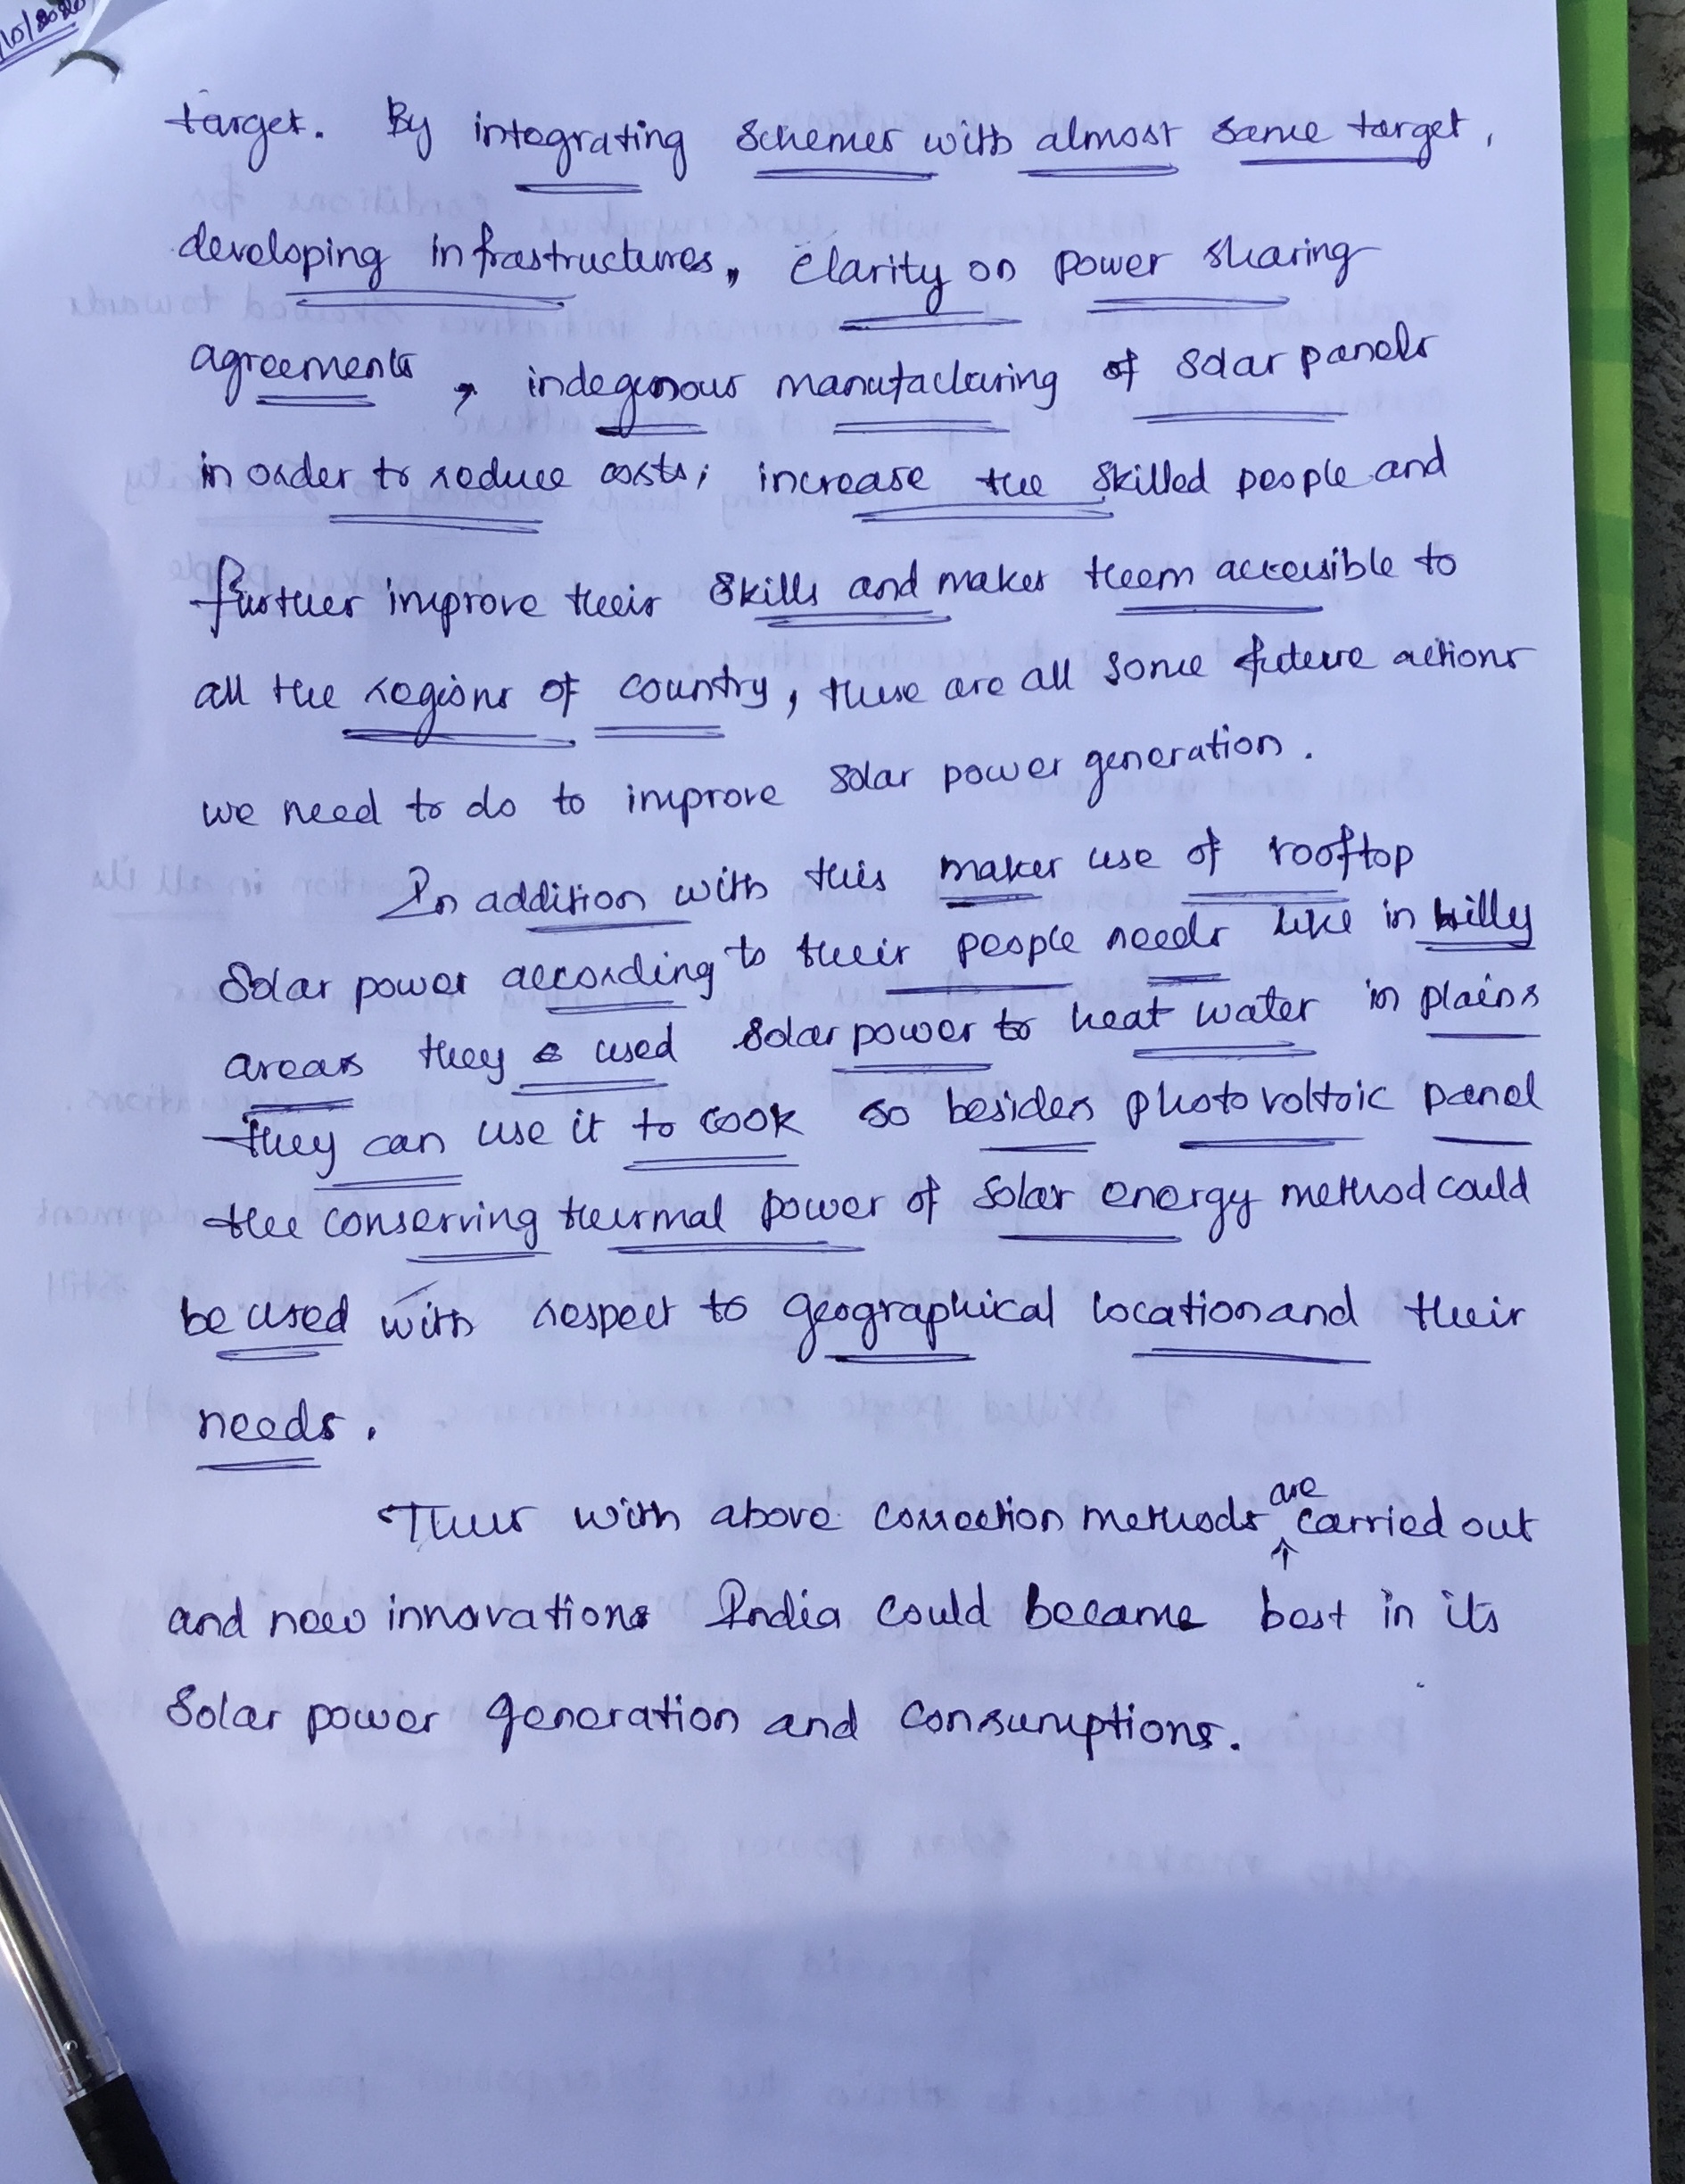 target. By integrating schemes with almost same target,
developing infrastructures, clarity on power sharing
agreements, indegenous manufacturing of solar panels
in order to reduce costs; increase the skilled people and
further improve their skills and makes them accessible to
all the regions of country, these are all some future actions
we need to do to improve solar power generation.
In addition with this makes use of rooftop
solar power according to their people needs like in hilly
areas they used solar power to heat water in plains
they can use it to cook so besides photovoltaic panel
the conserving thermal power of solar energy method could
be used with respect to geographical location and their
needs.
Thus with above correction methods are carried out
and new innovations India could became best in its
solar power generation and consumptions.